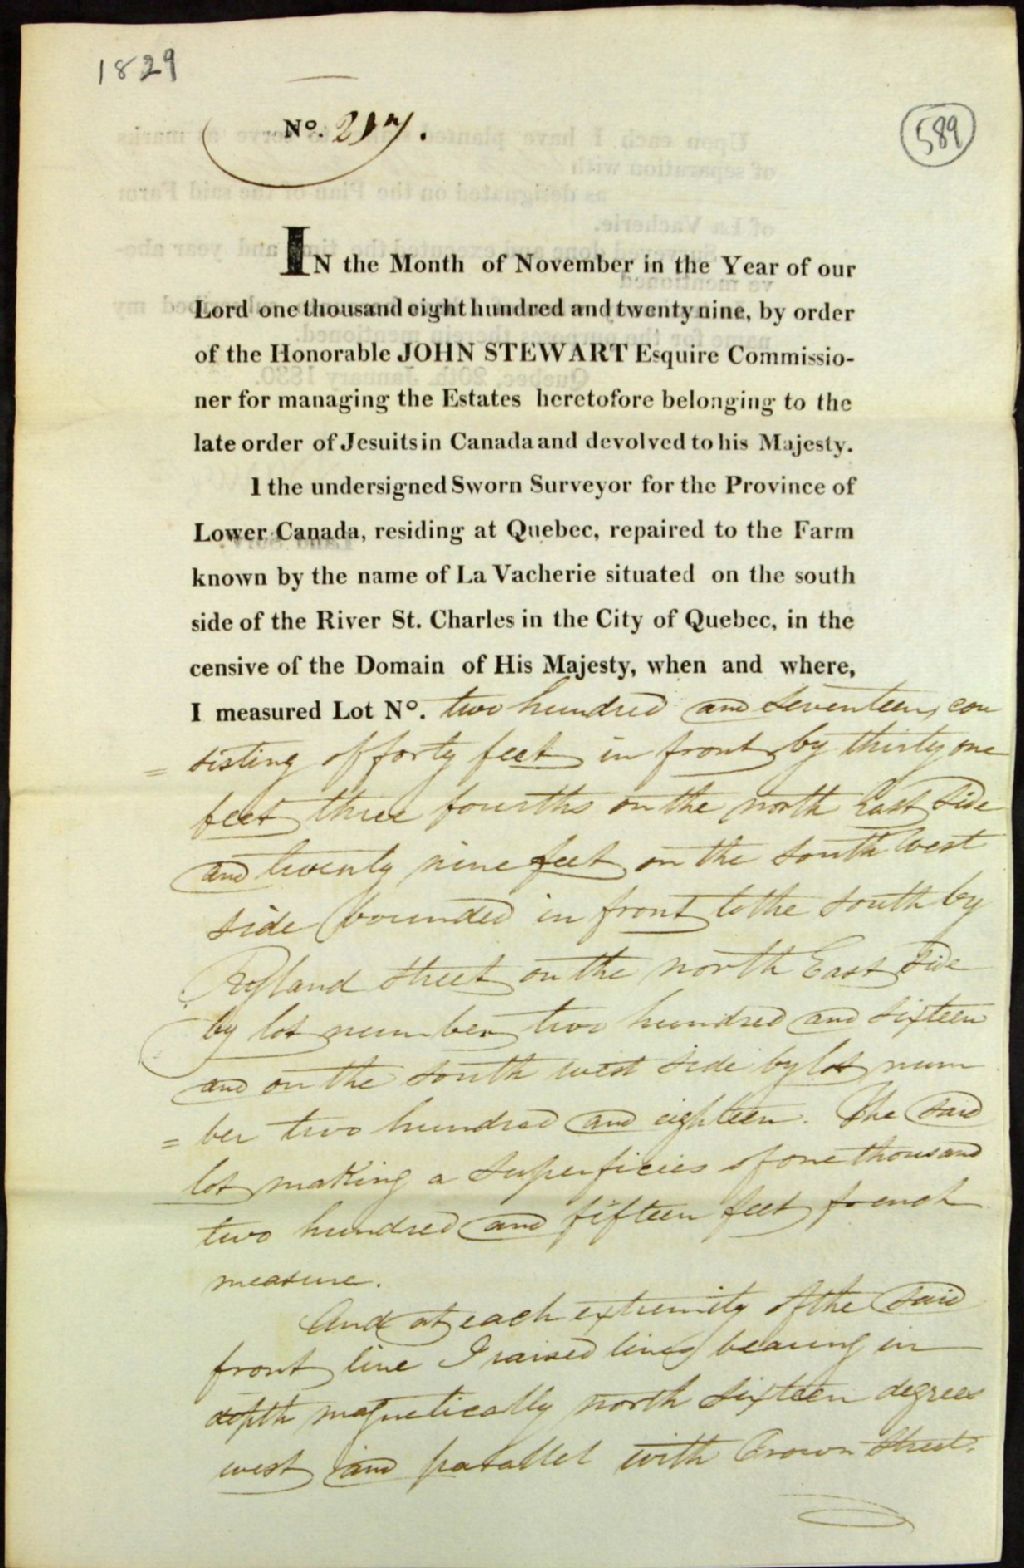 1829
No. 217.
589
IN the Month of November in the Year of our
Lord one thousand eight hundred and twenty nine, by order
of the Honorable JOHN STEWART Esquire Commissio-
ner for managing the Estates heretofore belonging to the
late order of Jesuits in Canada and devolved to his Majesty.
I the undersigned Sworn Surveyor for the Province of
Lower Canada, residing at Quebec, repaired to the Farm
known by the name of La Vacherie situated on the south
side of the River St. Charles in the City of Quebec, in the
censive of the Domain of His Majesty, when and where,
I measured Lot No. two hundred and seventeen, con
= sisting of forty feet in front by thirty one
feet three fourths on the north East Side
and twenty nine feet on the South West
side bounded in front to the South by
Ryland Street on the north East Side
by lot number two hundred and sixteen
and on the South west side by lot num
= ber two hundred and eighteen. The said
lot making a Superficies of one thousand
two hundred and fifteen feet french
measure.
And at each extremity of the said
front line I raised lines bearing in
depth magnetically north sixteen degrees
west and parallel with Crown Street.